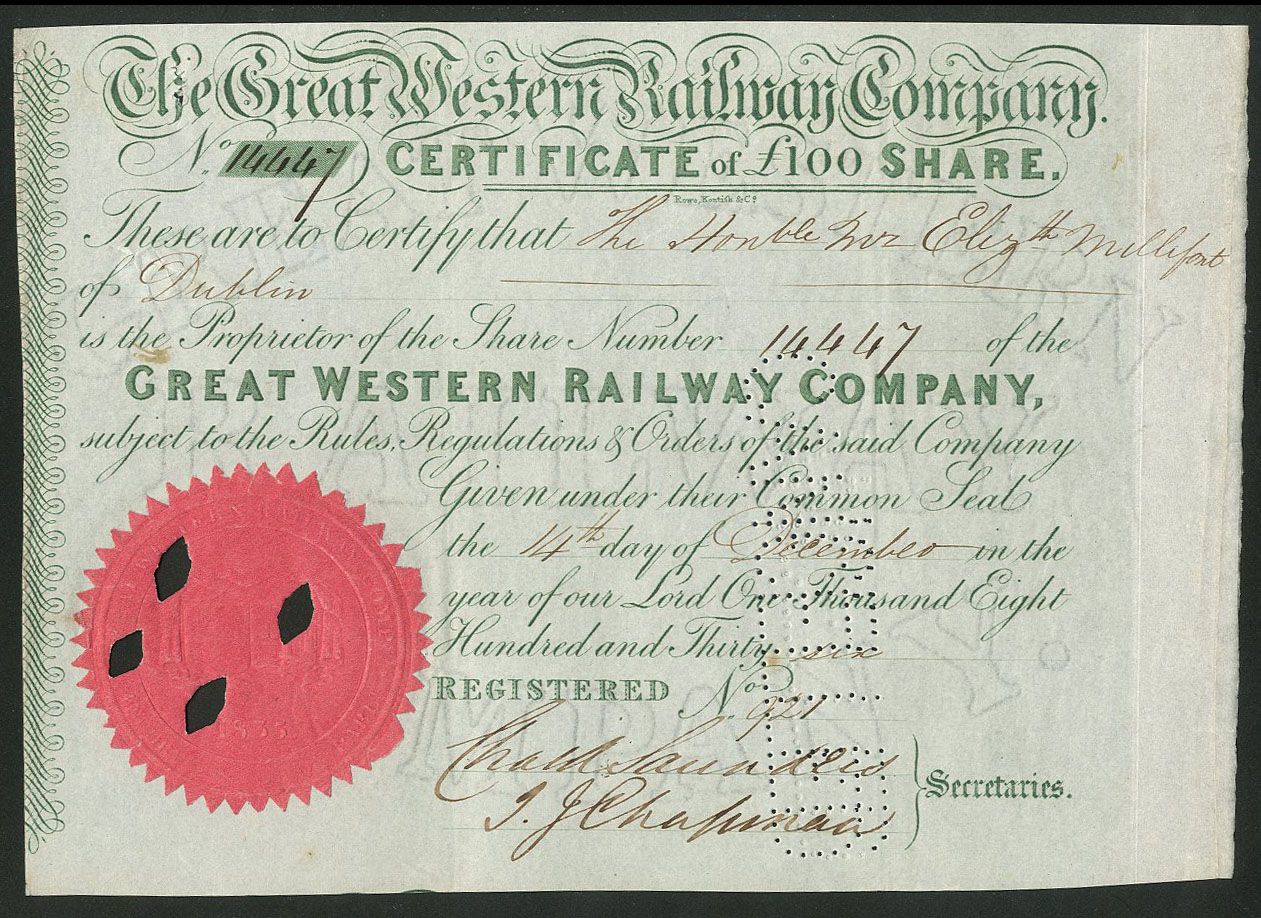 The Great Western Railway Company.
No. 14447 CERTIFICATE of £100 SHARE.
Rowe, Kentish & Co.
These are to Certify that The Honble Mrs Elizth
of Dublin
is the Proprietor of the Share Number 14447 of the
GREAT WESTERN RAILWAY COMPANY,
subject to the Rules, Regulations & Orders of the said Company
Given under their Common Seal
the 14th day of December in the
year of our Lord One Thousand Eight
Hundred and Thirty six
REGISTERED No. 921
1833
Chas Saunders
T. J. Chapman
Secretaries.
CANCELLED